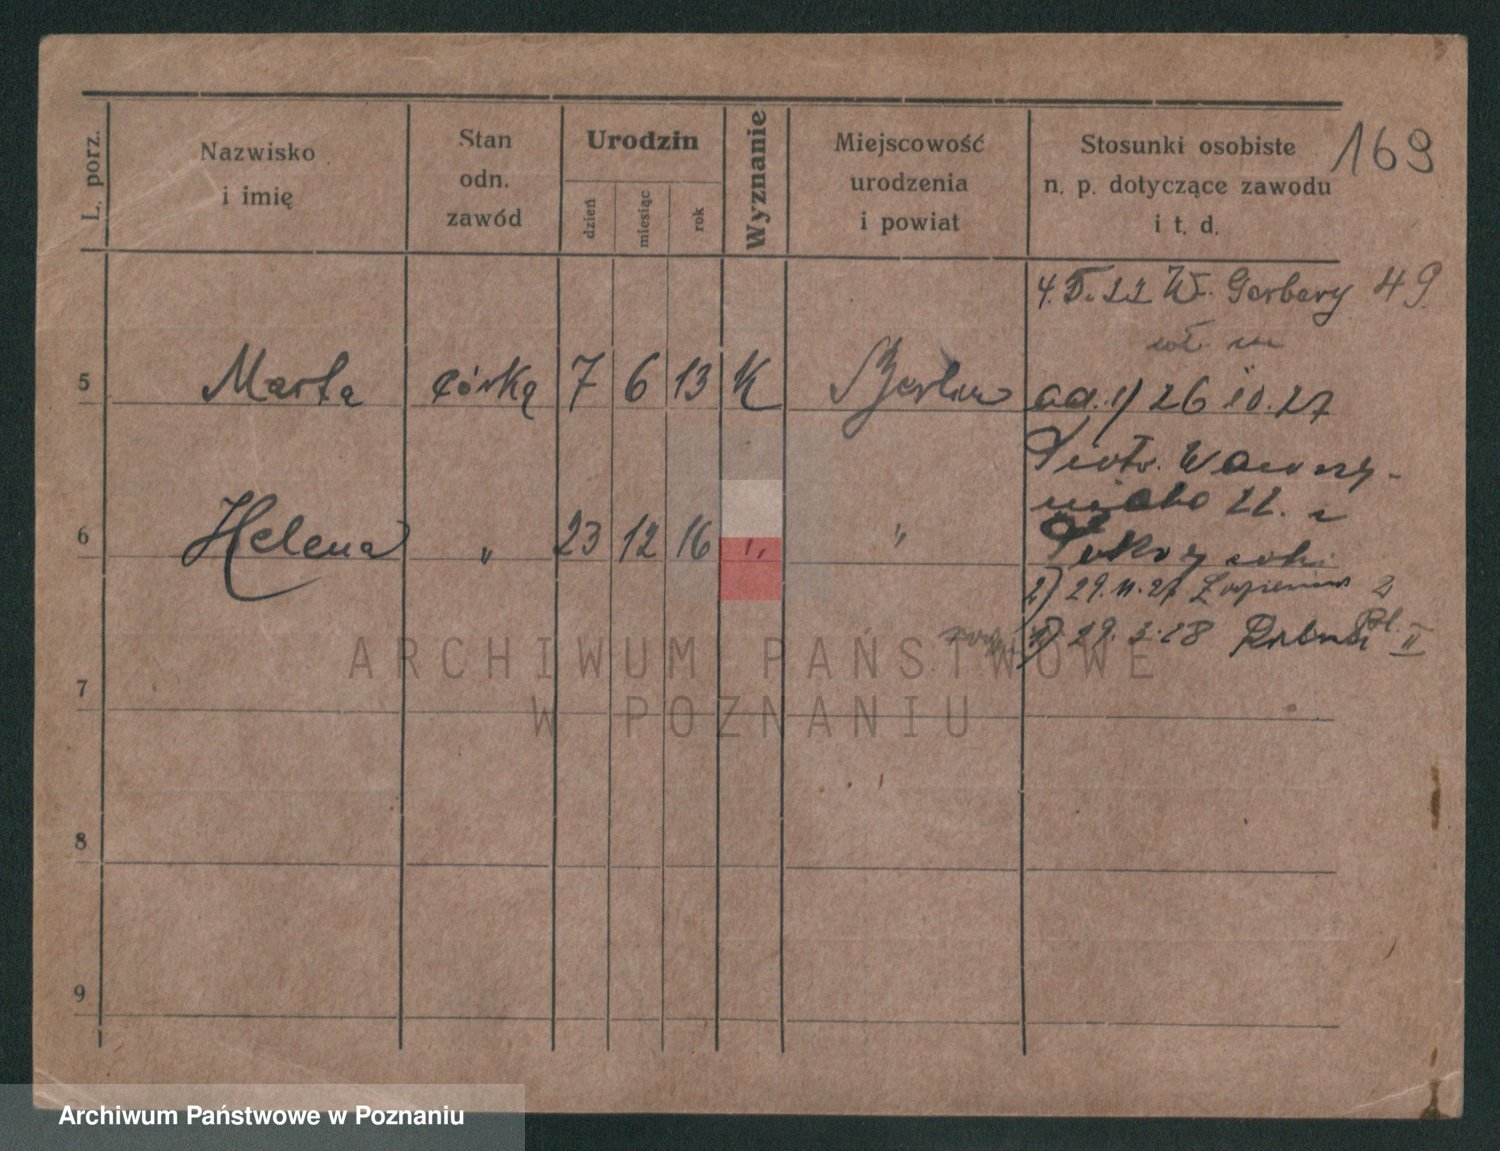 L. porz.
Nazwisko
i imię
Stan
odn.
zawód
Urodzin
dzień
miesiąc
rok
Wyznanie
Miejscowość
urodzenia
i powiat
Stosunki osobiste
n. p. dotyczące zawodu
i t. d.
169
4. 5. 22 W. Garbary 49.
5 Marta córka 7 6 13 K Berlin
ad. 1) 26 10. 27
Piotr. Wawrzy-
niaka 22.
6 Helena " 23 12 16 " "
2) 29. 11. 27
29. 3. 28
7
8
9
ARCHIWUM PAŃSTWOWE
W POZNANIU
Archiwum Państwowe w Poznaniu